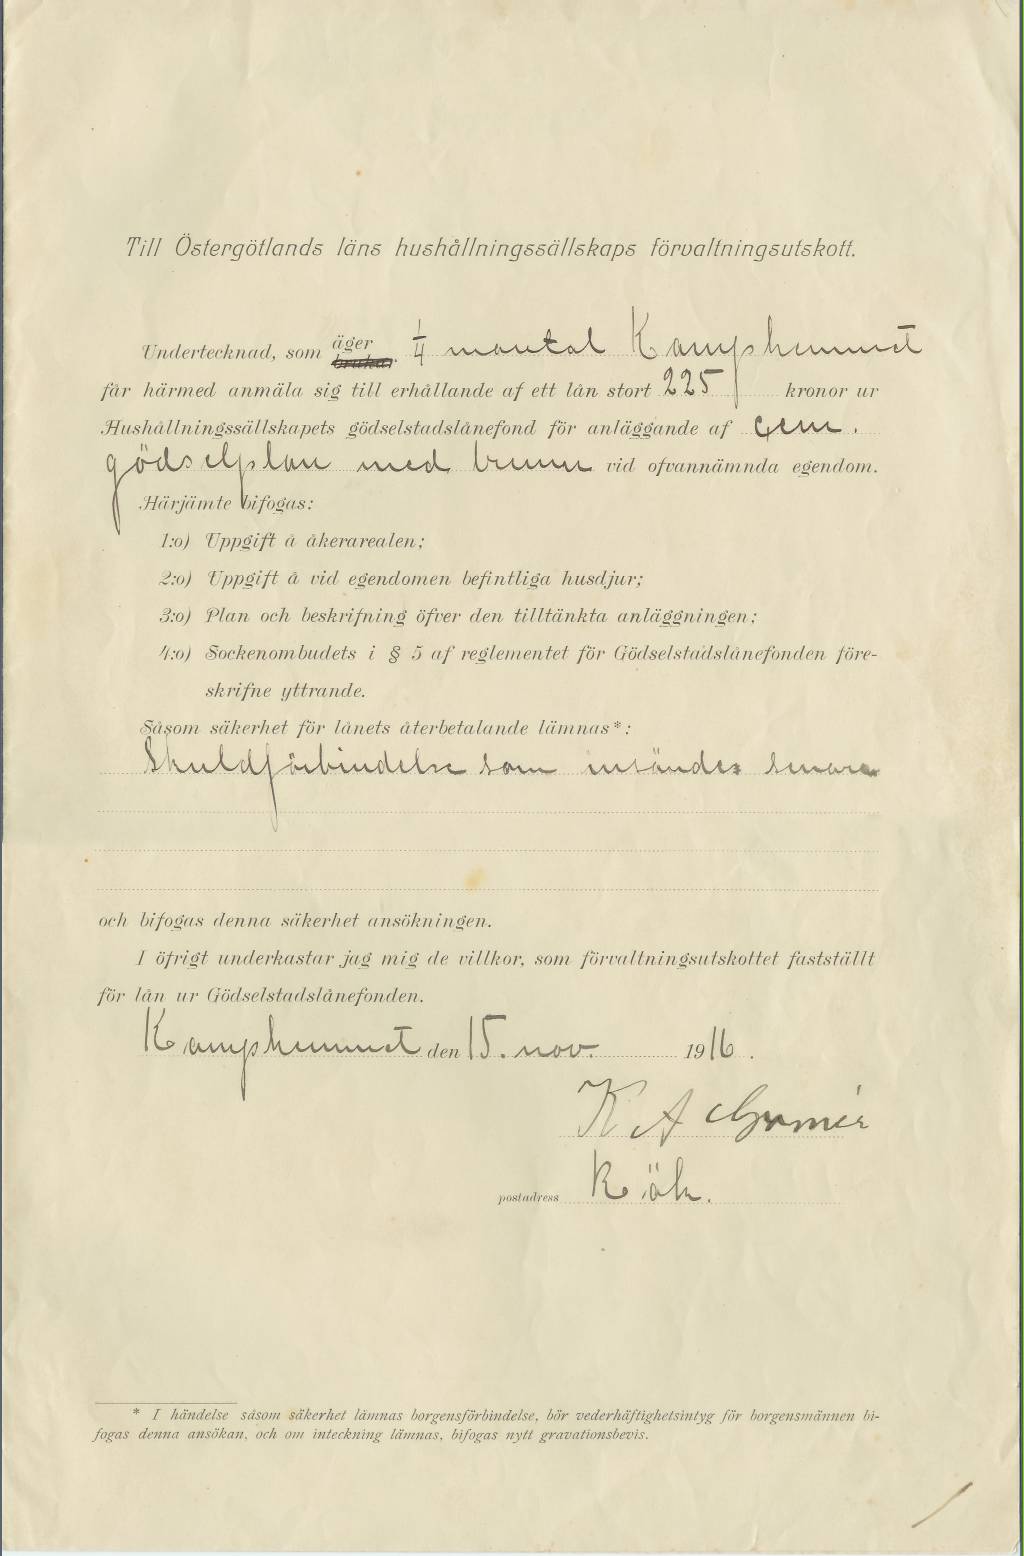 Till Östergötlands läns hushållningssällskaps förvaltningsutskott.
Undertecknad, som äger brukar 1/4 mantal Kampshemmet
får härmed anmäla sig till erhållande af ett lån stort 225 kronor ur
Hushållningssällskapets gödselstadslånefond för anläggande af cem.
gödselplan med brunn vid ofvannämnda egendom.
Härjämte bifogas:
1:o) Uppgift å åkerarealen;
2:o) Uppgift å vid egendomen befintliga husdjur;
3:o) Plan och beskrifning öfver den tilltänkta anläggningen;
4:o) Sockenombudets i § 5 af reglementet för Gödselstadslånefonden före-
skrifne yttrande.
Såsom säkerhet för lånets återbetalande lämnas*:
Skuldförbindelse som insändes senare
och bifogas denna säkerhet ansökningen.
I öfrigt underkastar jag mig de villkor, som förvaltningsutskottet fastställt
för lån ur Gödselstadslånefonden.
Kampshemmet den 15. nov. 1916.
K A
postadress Rök.
* I händelse såsom säkerhet lämnas borgensförbindelse, bör vederhäftighetsintyg för borgensmännen bi-
fogas denna ansökan, och om inteckning lämnas, bifogas nytt gravationsbevis.